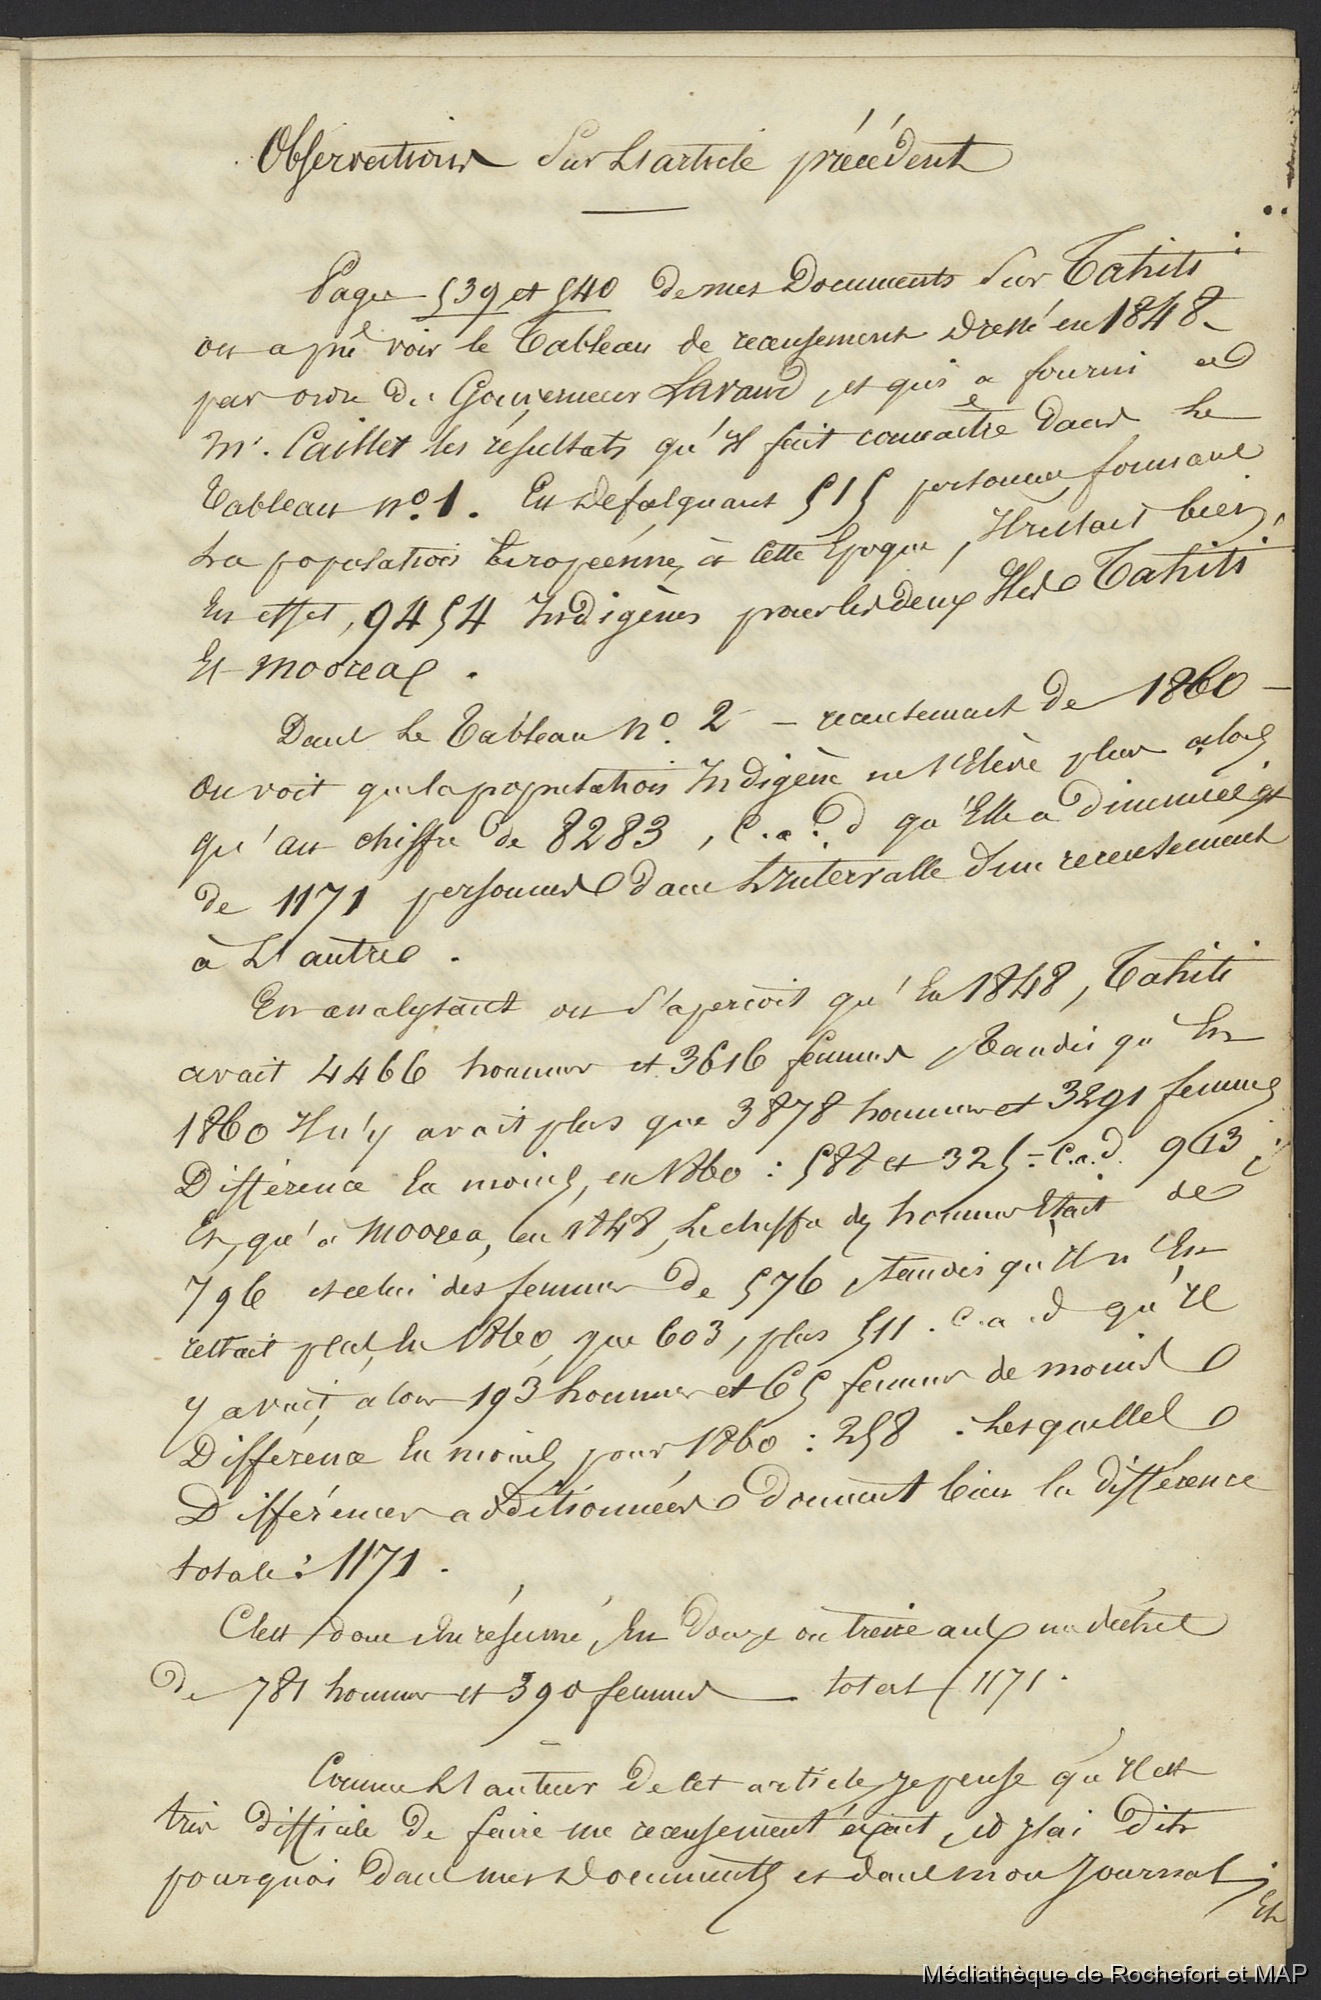 Observations sur L'article précédent
Pages 539 et 540 de mes Documents sur Tahiti
on a pu voir le Tableau de recensement dressé en 1848
par ordre du Gouverneur Lavaud, et qui a fourni à
Mr. Caillet les résultats qu'Il fait connaître dans Le
Tableau no. 1. En défalquant 515 personnes formant
La population Européenne, à cette Epoque, Il restait bien,
En effet, 9454 Indigènes pour les deux Iles Tahiti
Et Moorea.
Dans Le Tableau no. 2 - recensement de 1860 -
On voit que la population Indigène ne s'Elève plus alors
qu'au chiffre de 8283, c.a.d qu'Elle a diminué
de 1171 personnes dans L'Intervalle d'un recensement
à L'autre.
En analysant on s'aperçoit qu'En 1848, Tahiti
avait 4466 hommes et 3616 femmes, tandis qu'En
1860 Il n'y avait plus que 3878 hommes et 3291 femmes
Différence En moins, en 1860 : 588 et 325 = c.a.d. 913 ;
Et, qu'à Moorea, en 1848, Le chiffre des hommes Etait de
796 et celui des femmes de 576, tandis qu'Il n'En
restait plus, En 1860, que 603, plus 511. c.a.d qu'Il
y avait, alors 193 hommes et 65 femmes de moins
Différence En moins pour 1860 : 258. Lesquelles
Différences additionnées donnent bien la différence
totale : 1171.
C'est donc En résumé, En douze ou treize ans un déchet
De 781 hommes et 390 femmes - total 1171.
Comme L'auteur de cet article, Je pense qu'Il est
très difficile de faire un recensement éxact, et J'ai dit
pourquoi dans mes Documents et dans mon Journal ;
Et
Médiathèque de Rochefort et MAP